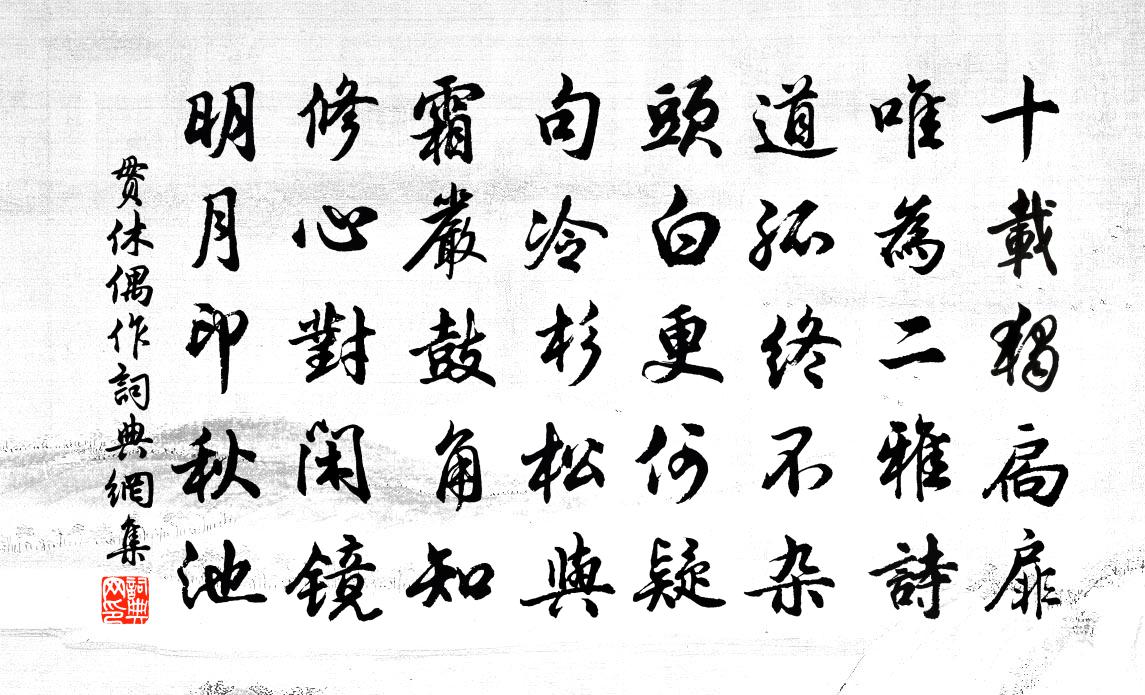 十載獨扃扉
唯為二雅詩
道孤終不杂
頭白更何疑
句冷杉松與
霜嚴鼓角知
修心對閑镜
明月印秋池
贯休偶作詞典網集
詞典网印